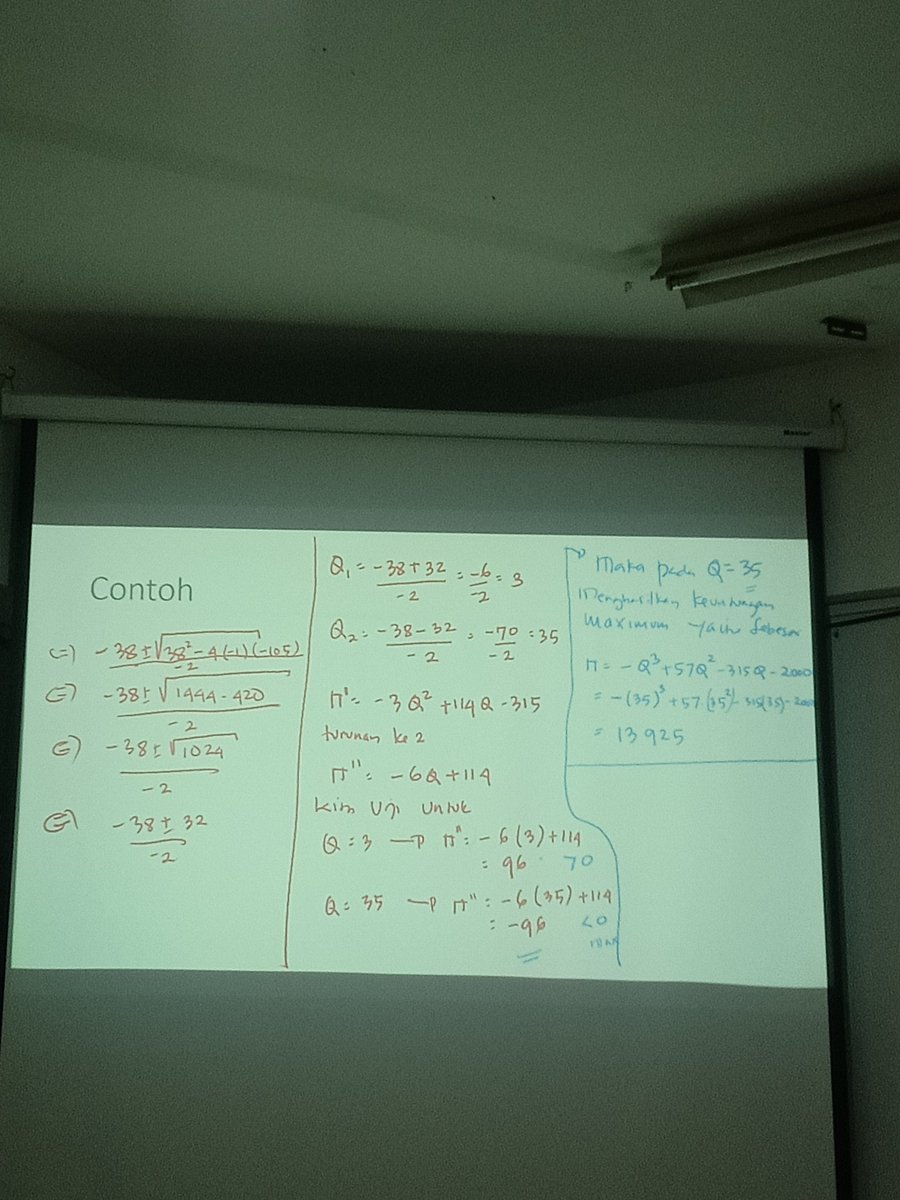 Contoh
=) -38±√38²-4(-1)(-105)
-2
=) -38±√1444-420
-2
=) -38±√1024
-2
=) -38±32
-2
Q₁ = -38+32 = -6 = 3
-2 -2
Q₂ = -38-32 = -70 = 35
-2 -2
Π' = -3Q²+114Q-315
turunan ke 2
Π'' = -6Q+114
uji untuk
Q = 3 → Π'' = -6(3)+114
= 96 >0
Q = 35 → Π'' = -6(35)+114
= -96 <0
Maka pada Q=35
Menghasilkan keuntungan
Maximum yaitu sebesar
Π = -Q³+57Q²-315Q-2000
= -(35)³+57(35²)-315(35)-2000
= 13925